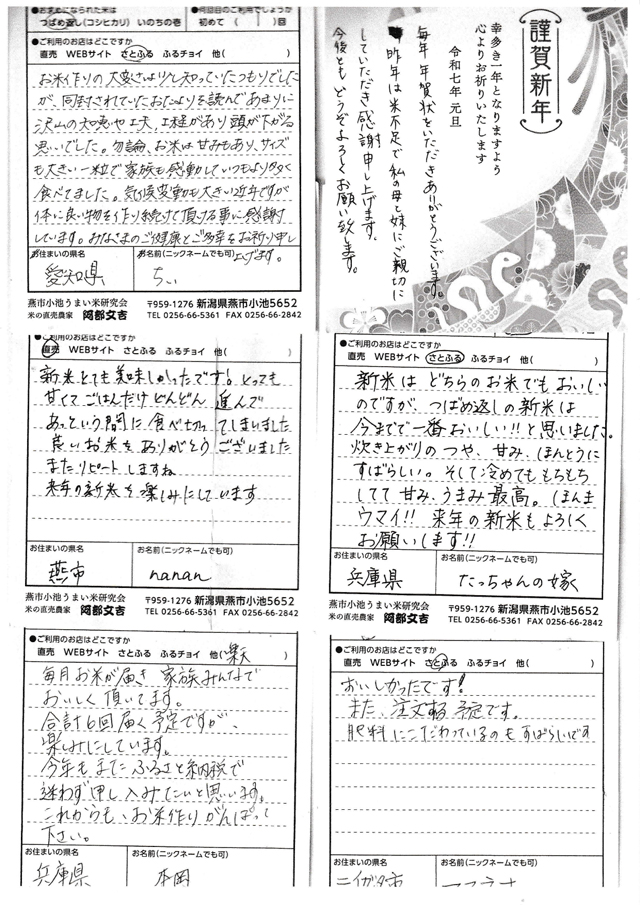 お求めになられた米は
つばめ返し(コシヒカリ) いのちの壱
●何回目のご利用でしょうか
初めて ( )回
●ご利用のお店はどこですか
直売 WEBサイト さとふる ふるチョイ 他( )
お米作りの大変さは少し知っていたつもりでした
が、同封されていたおたよりを読んであまりに
沢山の知恵や工夫、工程があり頭が下がる
思いでした。勿論、お米は甘みもあり、サイズ
も大きい一粒で家族も感動していつもより多く
食べてました。気候変動も大きい近年ですが
体に良い物を作り続けて頂ける事に感謝
しています。みなさまのご健康とご多幸をお祈り申し
上げます。
お住まいの県名
愛知県
お名前(ニックネームでも可)
ちぃ
燕市小池うまい米研究会
米の直売農家 阿部文吉
〒959-1276 新潟県燕市小池5652
TEL 0256-66-5361 FAX 0256-66-2842
謹賀新年
幸多き一年となりますよう
心よりお祈りいたします
令和七年 元旦
毎年 年賀状をいただきありがとうございます。
昨年は米不足で私の母と妹にご親切に
していただき感謝申し上げます。
今後ともどうぞよろしくお願い致します。
●ご利用のお店はどこですか
直売 WEBサイト さとふる ふるチョイ 他( )
新米とても美味しかったです!とっても
甘くてごはんだけどんどん 進んで
あっという間に食べ切ってしまいました
良いお米をありがとうございました
またリピートしますね
来年の新米を楽しみにしています
お住まいの県名
燕市
お名前(ニックネームでも可)
nanan
燕市小池うまい米研究会
米の直売農家 阿部文吉
〒959-1276 新潟県燕市小池5652
TEL 0256-66-5361 FAX 0256-66-2842
●ご利用のお店はどこですか
直売 WEBサイト さとふる ふるチョイ 他( )
新米は どちらのお米でもおいしい
のですが、つばめ返しの新米は
今までで一番おいしい!!と思いました。
炊き上がりのつや、甘み、ほんとうに
すばらしい。そして冷めてももちもち
してて甘み、うまみ最高。ほんま
ウマイ!! 来年の新米もよろしく
お願いします!!
お住まいの県名
兵庫県
お名前(ニックネームでも可)
たっちゃんの嫁
燕市小池うまい米研究会
米の直売農家 阿部文吉
〒959-1276 新潟県燕市小池5652
TEL 0256-66-5361 FAX 0256-66-2842
●ご利用のお店はどこですか
直売 WEBサイト さとふる ふるチョイ 他(楽天 )
毎月お米が届き 家族みんなで
おいしく頂いてます。
合計6回届く予定ですが、
楽しみにしています。
今年もまたふるさと納税で
迷わず申し込みたいと思います。
これからも、お米作りがんばって
下さい。
お住まいの県名
兵庫県
お名前(ニックネームでも可)
本岡
●ご利用のお店はどこですか
直売 WEBサイト さとふる ふるチョイ 他( )
おいしかったです!
また、注文する予定です。
肥料にこだわっているのもすばらしいです
お住まいの県名
お名前(ニックネームでも可)